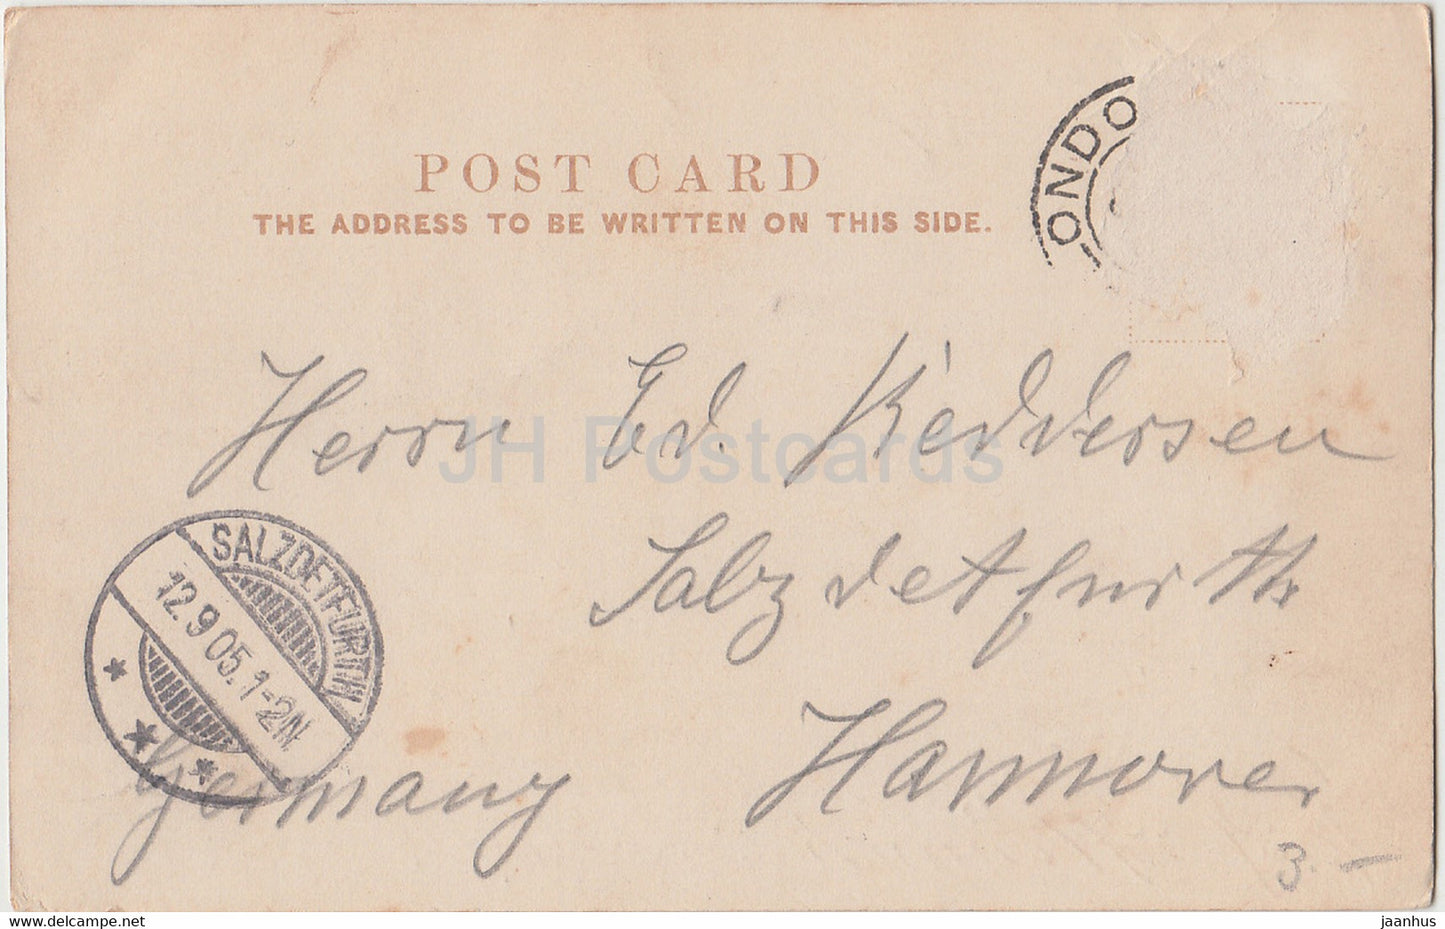 POST CARD
THE ADDRESS TO BE WRITTEN ON THIS SIDE.
ONDO
Herrn Ed. Keddersen
JH Postcards
Salzdetfurth
SALZDETFURTH
12.9.05.1-2N.
Hannover
Germany
3.-
www.delcampe.net
jaanhus